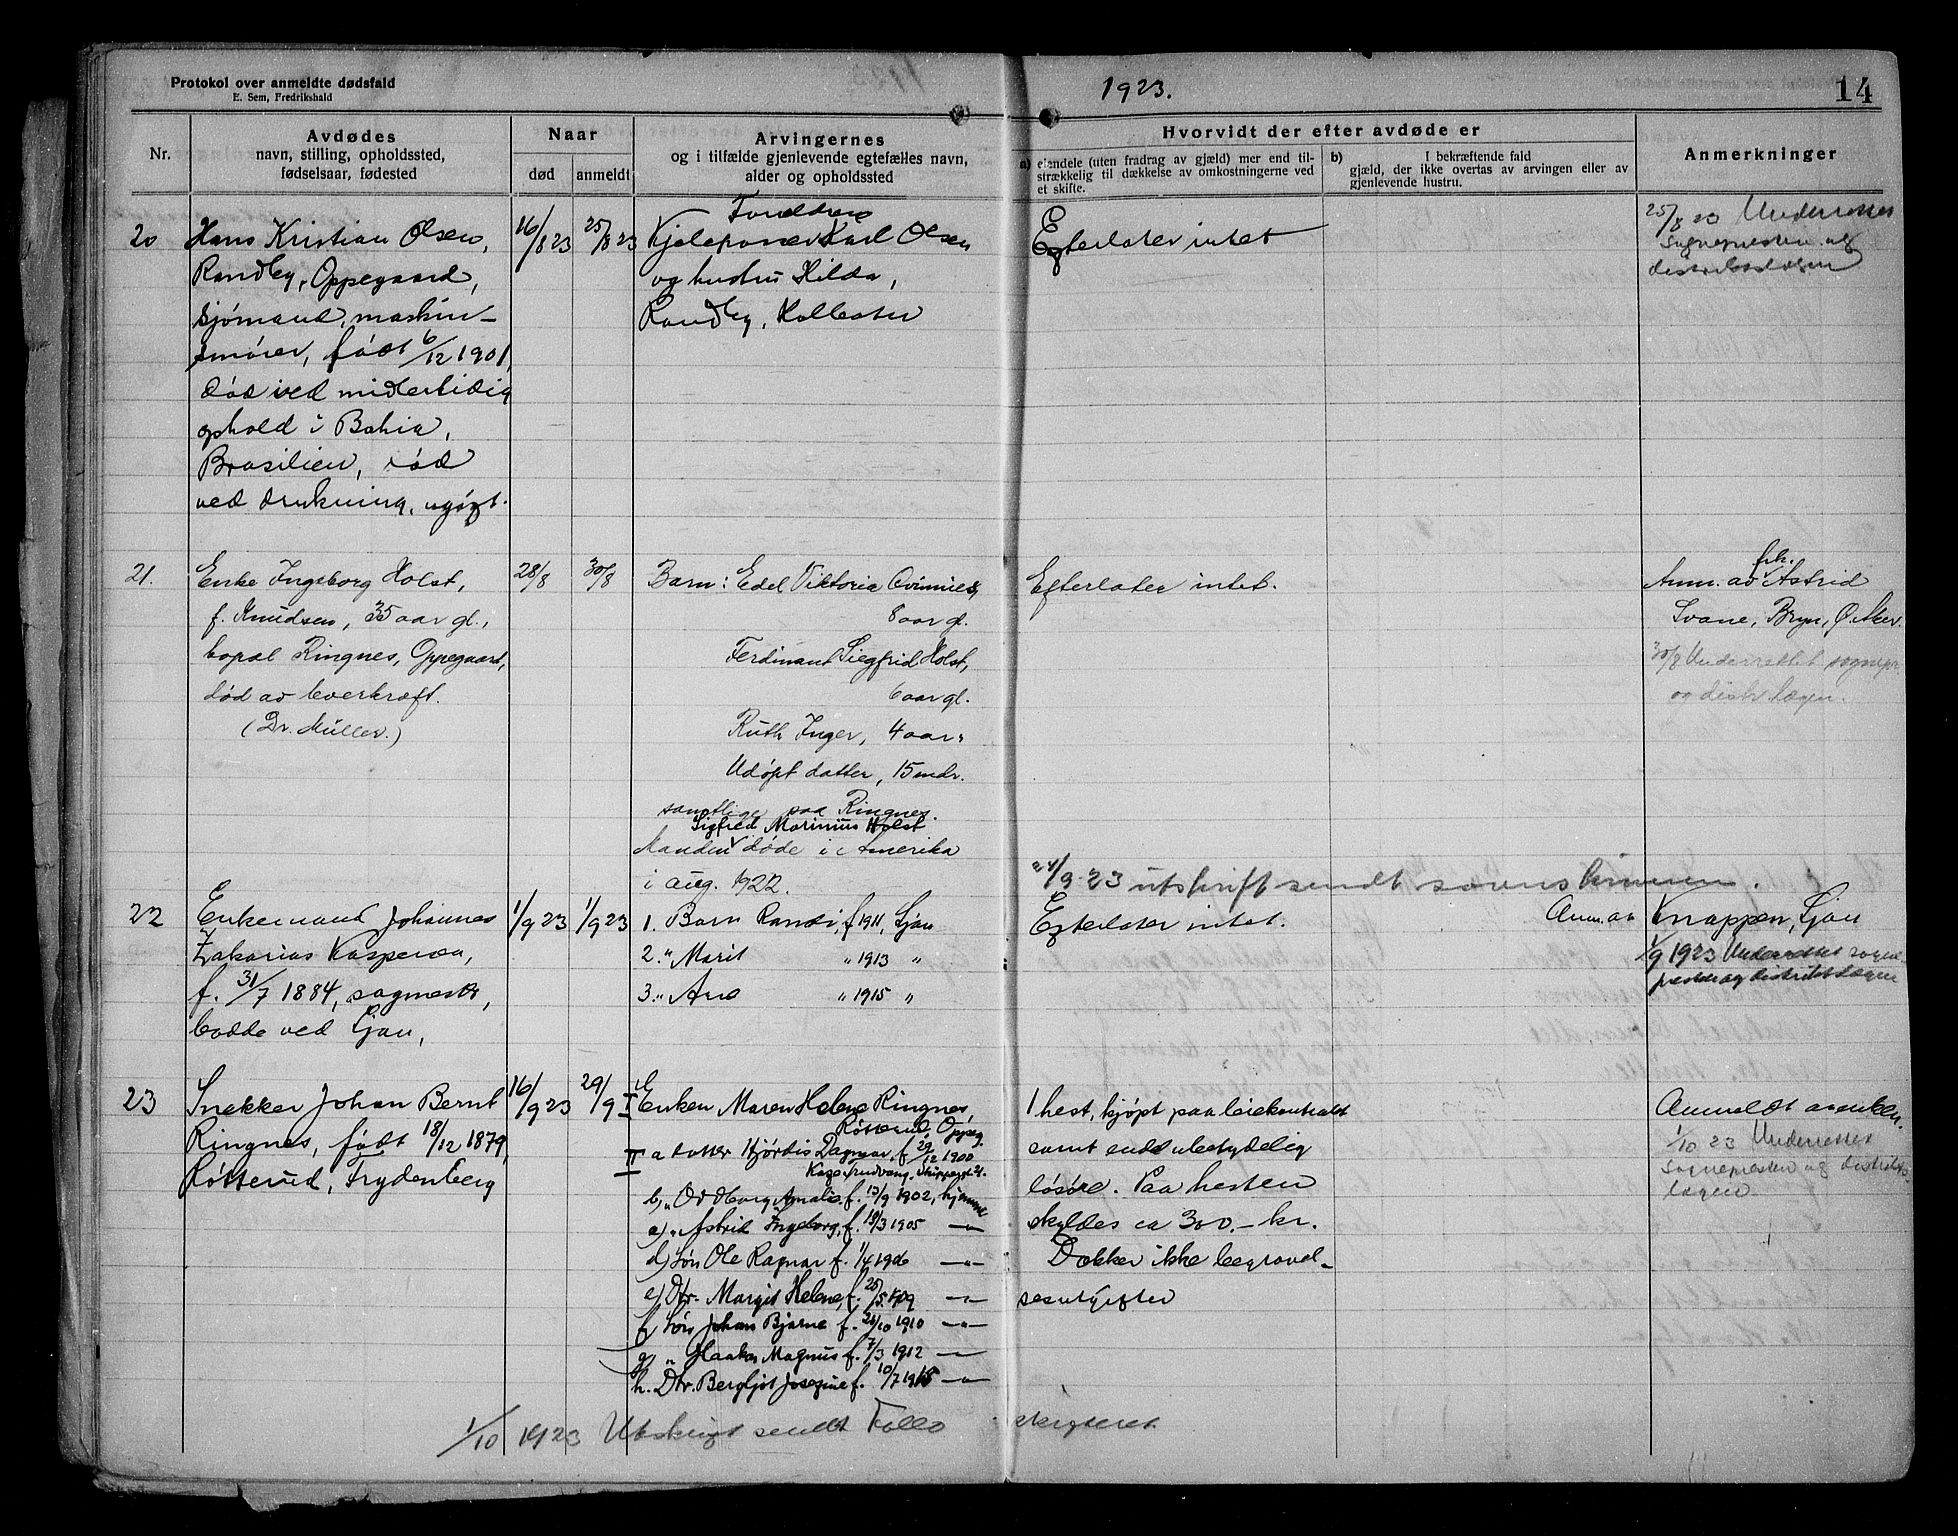 Protokol over anmeldte dødsfald
E. Sem, Fredrikshald
1923.
14
Nr.
Avdødes
navn, stilling, opholdssted,
fødselsaar, fødested
Naar
død
anmeldt
Arvingernes
og i tilfælde gjenlevende egtefælles navn,
alder og opholdssted
Hvorvidt der efter avdøde er
a) eiendele (uten fradrag av gjæld) mer end til-
strækkelig til dækkelse av omkostningerne ved
et skifte.
b) I bekræftende fald
gjæld, der ikke overtas av arvingen eller av
gjenlevende hustru.
Anmerkninger
20
Hans Kristian Olsen,
Randby, Oppegaard,
sjømand, maskin-
smører, født 6/12 1901,
død ved midlertidig
ophold i Bahia,
Brasilien, død
ved drukning, ugift.
16/8 23
25/8 23
Foreldrene
Kjelepasser Karl Olsen
og hustru Hilda,
Randby, Kolbotn
Efterlater intet
25/8 23 Underrettet
sognepresten og
distriktslægen
21.
Enke Ingeborg Holst,
f. Knudsen, 35 aar gl.,
bopæl Ringnes, Oppegaard,
død av leverkræft.
(Dr. Müller.)
28/8
30/8
Barn: Edel Viktoria
8 aar gl.
Ferdinant Siegfrid Holst,
6 aar gl.
Ruth Inger, 4 aar "
Udøpt datter, 15 mdr.
samtlige paa Ringnes.
Sigfred Marinius Holst
Manden døde i Amerika
i aug. 1922.
Efterlater intet.
24/9-23 utskrift sendt sorenskriveren.
Anm. av frk. Astrid
Svane, Bryn, Ø. Aker.
30/8 Underrettet sognepr.
og distr. lægen.
22
Enkemand Johannes
Zakarias Kaspersen,
f. 31/7 1884,
bodde ved Ljan,
1/9 23
1/9 23
1. Barn Randi, f. 1911, Ljan
2. " Marit " 1913 "
3. " Arne " 1915 "
Efterlater intet.
Anm. av Knappen, Ljan
1/9 1923 Underrettet sogne-
presten og distriktslægen
23
Snekker Johan Bernt
Ringnes, født 18/12 1879,
Røtterud, Frydenberg
16/9 23
29/9
I Enken Maren Helene Ringnes,
Røtterud, Oppeg.
II a Datter Hjørdis Dagmar, f. 29/12 1900
b) " Oddborg Amalie f. 13/9 1902, hjemme
c) " Astrid Ingeborg, f. 18/3 1905 -"-
d) Søn Ole Ragnar f. 1/4 1906 -"-
e) Dtr. Margit Helene, f. 25/5 1909 -"-
f) Søn Johan Bjarne f. 21/10 1910 -"-
g) " Haakon Magnus f. 7/3 1912 -"-
h. Dtr. Bergljot Josefine f. 10/7 1915 -"-
1 hest, kjøpt paa leiekontrakt
samt endel ubetydelig
løsøre. Paa hesten
skyldes ca 300.- kr.
Dækker ikke begravel-
sesutgifter
Anmeldt av enken.
1/10 23 Underrettet
Sognepresten og distrikts-
lægen
1/10 1923 Utskrift sendt Follo skifteret